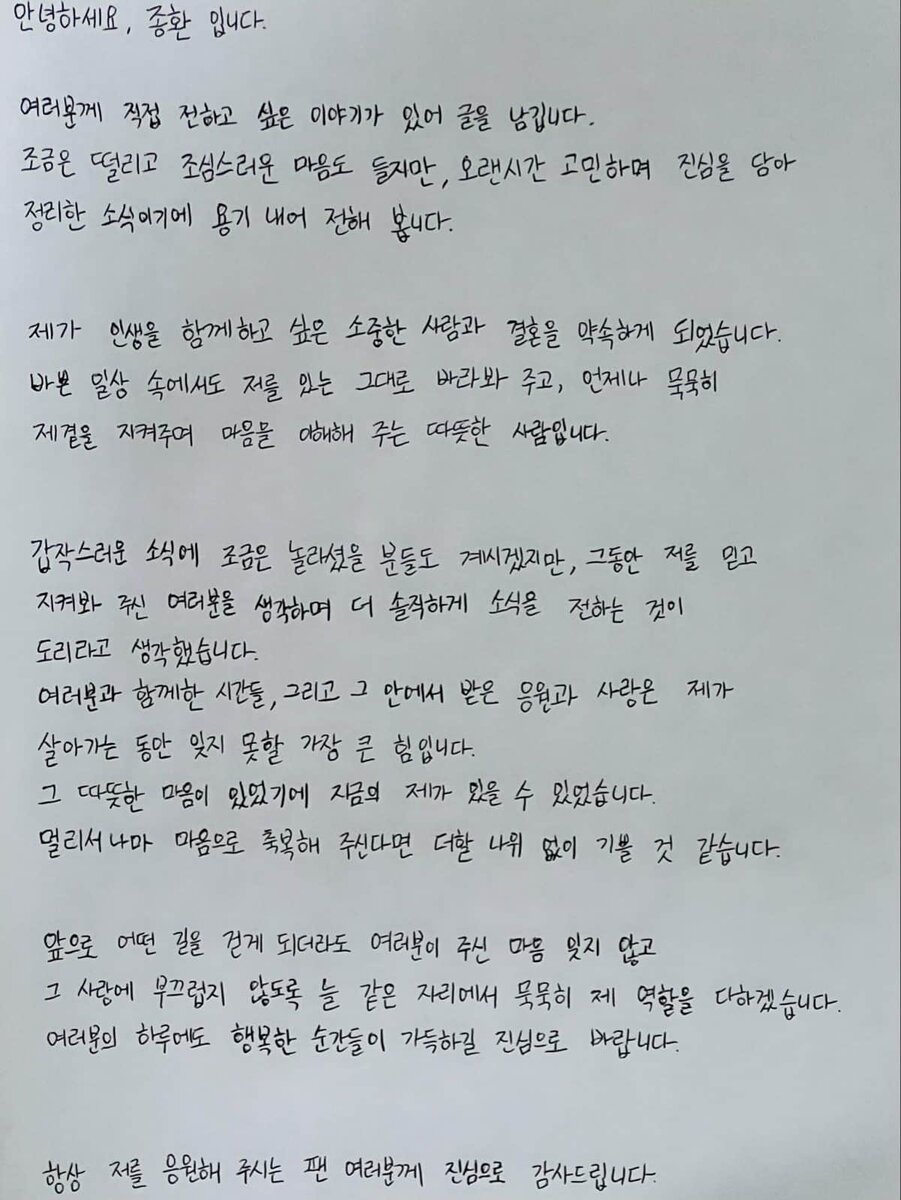 안녕하세요, 종환 입니다.
여러분께 직접 전하고 싶은 이야기가 있어 글을 남깁니다.
조금은 떨리고 조심스러운 마음도 들지만, 오랜시간 고민하며 진심을 담아
정리한 소식이기에 용기 내어 전해 봅니다.
제가 인생을 함께하고 싶은 소중한 사람과 결혼을 약속하게 되었습니다.
바쁜 일상 속에서도 저를 있는 그대로 바라봐 주고, 언제나 묵묵히
제곁을 지켜주며 마음을 이해해 주는 따뜻한 사람입니다.
갑작스러운 소식에 조금은 놀라셨을 분들도 계시겠지만, 그동안 저를 믿고
지켜봐 주신 여러분을 생각하며 더 솔직하게 소식을 전하는 것이
도리라고 생각했습니다.
여러분과 함께한 시간들, 그리고 그 안에서 받은 응원과 사랑은 제가
살아가는 동안 잊지 못할 가장 큰 힘입니다.
그 따뜻한 마음이 있었기에 지금의 제가 있을 수 있었습니다.
멀리서나마 마음으로 축복해 주신다면 더할 나위 없이 기쁠 것 같습니다.
앞으로 어떤 길을 걷게 되더라도 여러분이 주신 마음 잊지 않고
그 사랑에 부끄럽지 않도록 늘 같은 자리에서 묵묵히 제 역할을 다하겠습니다.
여러분의 하루에도 행복한 순간들이 가득하길 진심으로 바랍니다.
항상 저를 응원해 주시는 팬 여러분께 진심으로 감사드립니다.